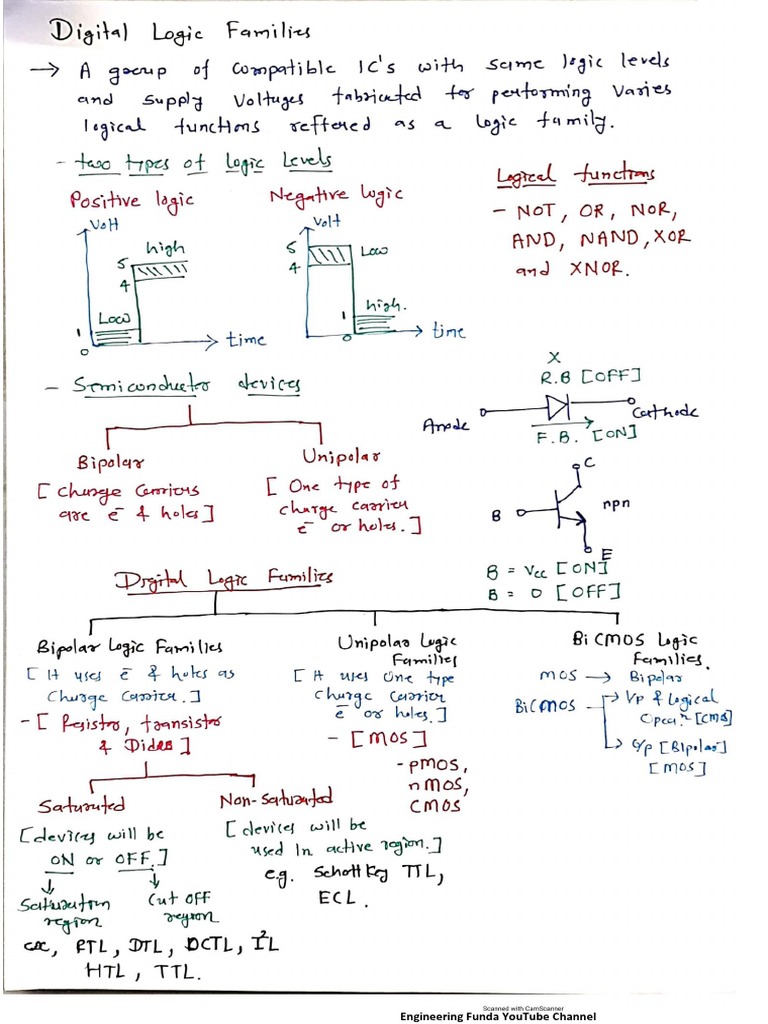 Digital Logic Families
→ A group of compatible IC's with same logic levels
and supply voltages fabricated for performing varies
logical functions reffered as a logic family.
- two types of Logic Levels
Positive logic
Volt
5
high
4
Low
1
0
time
Negative Logic
Volt
5
Low
4
1
high.
0
time
Logical functions
- NOT, OR, NOR,
AND, NAND, XOR
and XNOR.
- Semiconductor devices
Bipolar
[Charge Carriers
are e⁻ & holes]
Unipolar
[ One type of
charge carrier
e⁻ or holes.]
X
R.B [OFF]
Anode
Cathode
F.B. [ON]
C
B
npn
E
B = Vcc [ON]
B = 0 [OFF]
Digital Logic Families
Bipolar Logic Families
[It uses e⁻ & holes as
Charge Carrier.]
-[ Resistor, transistor
& Diodes ]
Unipolar Logic
Families
[It uses One type
Charge Carrier
e⁻ or holes.]
- [MOS]
- pMOS,
nMOS,
CMOS
BiCMOS Logic
Families.
MOS → Bipolar
BiCMOS → I/p & Logical
[CMOS]
→ O/p [Bipolar]
[MOS]
Saturated
[devices will be
ON or OFF.]
Saturation
region
Cut OFF
region
RTL, DTL, DCTL, I²L
HTL, TTL.
Non-Saturated
[devices will be
used In active region.]
e.g. Schottkey TTL,
ECL.
Scanned with CamScanner
Engineering Funda YouTube Channel